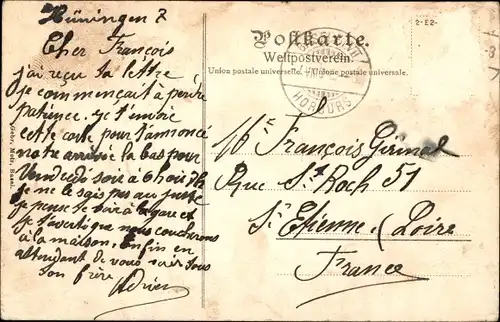 Hüningen 7
Cher François
j'ai reçu ta lettre
je commençait à perdre
patience. je t'envoie
cette carte pour t'annoncé
notre arrivée la bas pour
Vendredi soir à 6 hoir 7h
je ne le sais pas au juste
je pense te voir à la gare et
je t'averti que nous coucherons
à la maison. Enfin en
attendant de vous voir tous
ton frère Adrien
Gebr. Metz, Basel.
Postkarte.
Weltpostverein.
Union postale universelle. — Unione postale universale.
HORBURG
2-E2-
Mr François Girinal
Rue St Roch 51
St Etienne (Loire
France